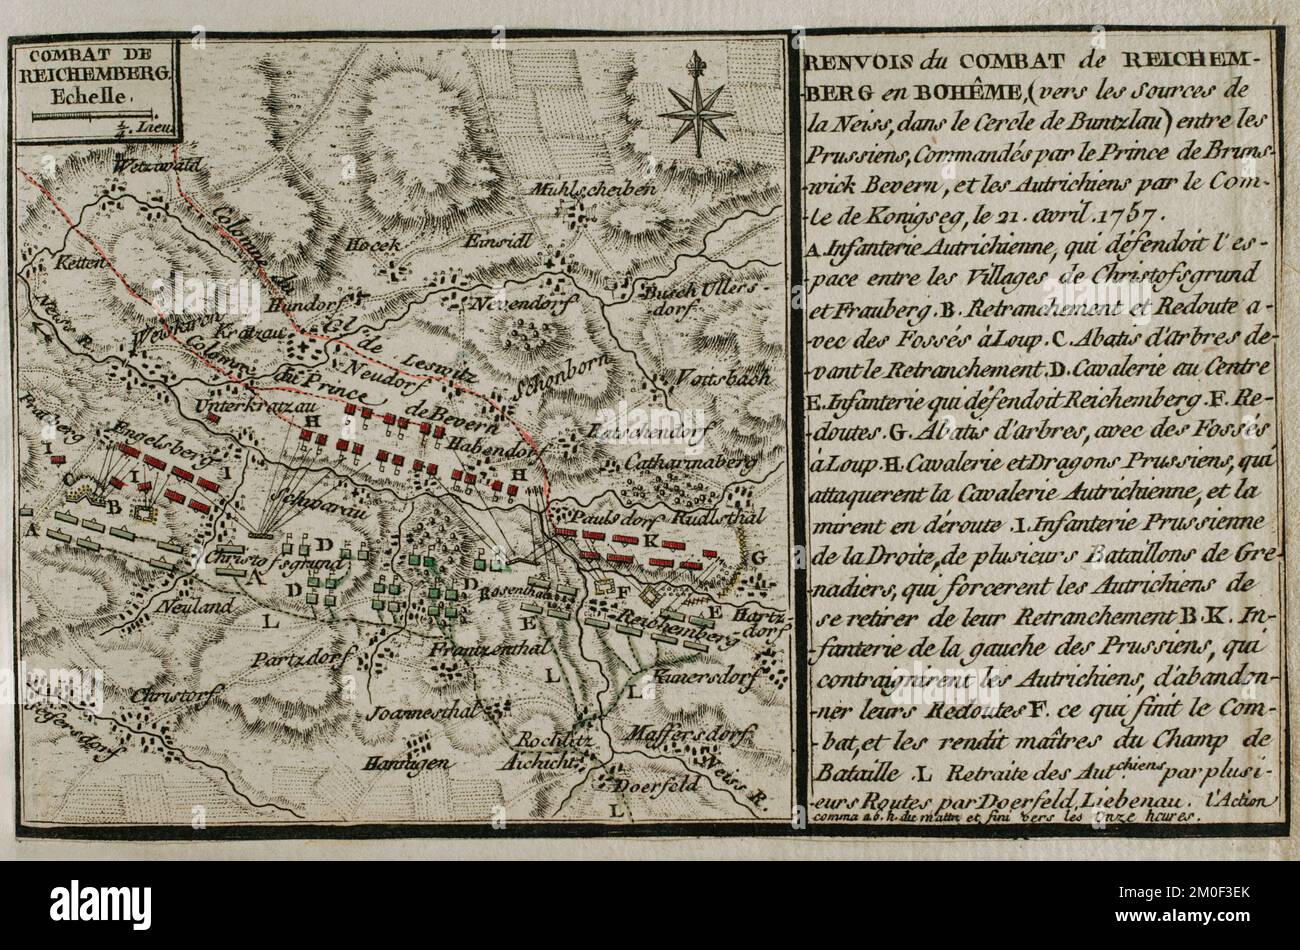 COMBAT DE
REICHEMBERG.
Echelle.
½. Lieu
Wetzwald
Ketten
Neiss R.
Colomne de
Gl. de Leswitz
Hocek
Einsidl
Muhlscheiben
Hundorf
Kratzau
Nevendorf
Busch Ullers-
dorf
Weiskirch
Colomne du Prince de Bevern
Neudorf
Schonborn
Voitsbach
Unterkratzau
H
Habendorf
Ratschendorf
Catharinaberg
Fraberg
Engelsberg
I
I
I
H
C
B
Schwarau
Paulsdorf
Rudlsthal
K
A
Christofsgrund
A
D
D
D
D
Rosenthal
F
G
Neuland
L
E
Reichemberg
E
Hartz-
dorf
Partzdorf
Frantzenthal
L
L
Kunersdorf
Christorf
Joannesthal
Segersdorf
Hannigen
Rochlitz
Aichicht
Maffersdorf
Neiss R.
Doerfeld
L
RENVOIS du COMBAT de REICHEM-
-BERG en BOHÊME, (vers les Sources de
la Neiss, dans le Cercle de Buntzlau) entre les
Prussiens, Commandés par le Prince de Bruns-
-wick Bevern, et les Autrichiens par le Com-
-te de Konigseg, le 21. avril. 1757.
A. Infanterie Autrichienne, qui défendoit l'es-
-pace entre les Villages de Christofsgrund
et Frauberg. B. Retranchement et Redoute a-
-vec des Fossés à Loup. C. Abatis d'arbres de-
-vant le Retranchement. D. Cavalerie au Centre
E. Infanterie qui défendoit Reichemberg. F. Re-
-doutes. G. Abatis d'arbres, avec des Fossés
à Loup. H. Cavalerie et Dragons Prussiens, qui
attaquerent la Cavalerie Autrichienne, et la
mirent en déroute. I. Infanterie Prussienne
de la Droite, de plusieurs Bataillons de Gre-
-nadiers, qui forcerent les Autrichiens de
se retirer de leur Retranchement B. K. In-
-fanterie de la gauche des Prussiens, qui
contraignirent les Autrichiens, d'abandon-
-ner leurs Redoutes F. ce qui finit le Com-
-bat, et les rendit maîtres du Champ de
Bataille. L Retraite des Autchiens par plusi-
-eurs Routes par Doerfeld, Liebenau. l'Action
comma a 6. h. du matin et fini vers les Onze heures.
alamy
Image ID: 2K0F3EK
www.alamy.com